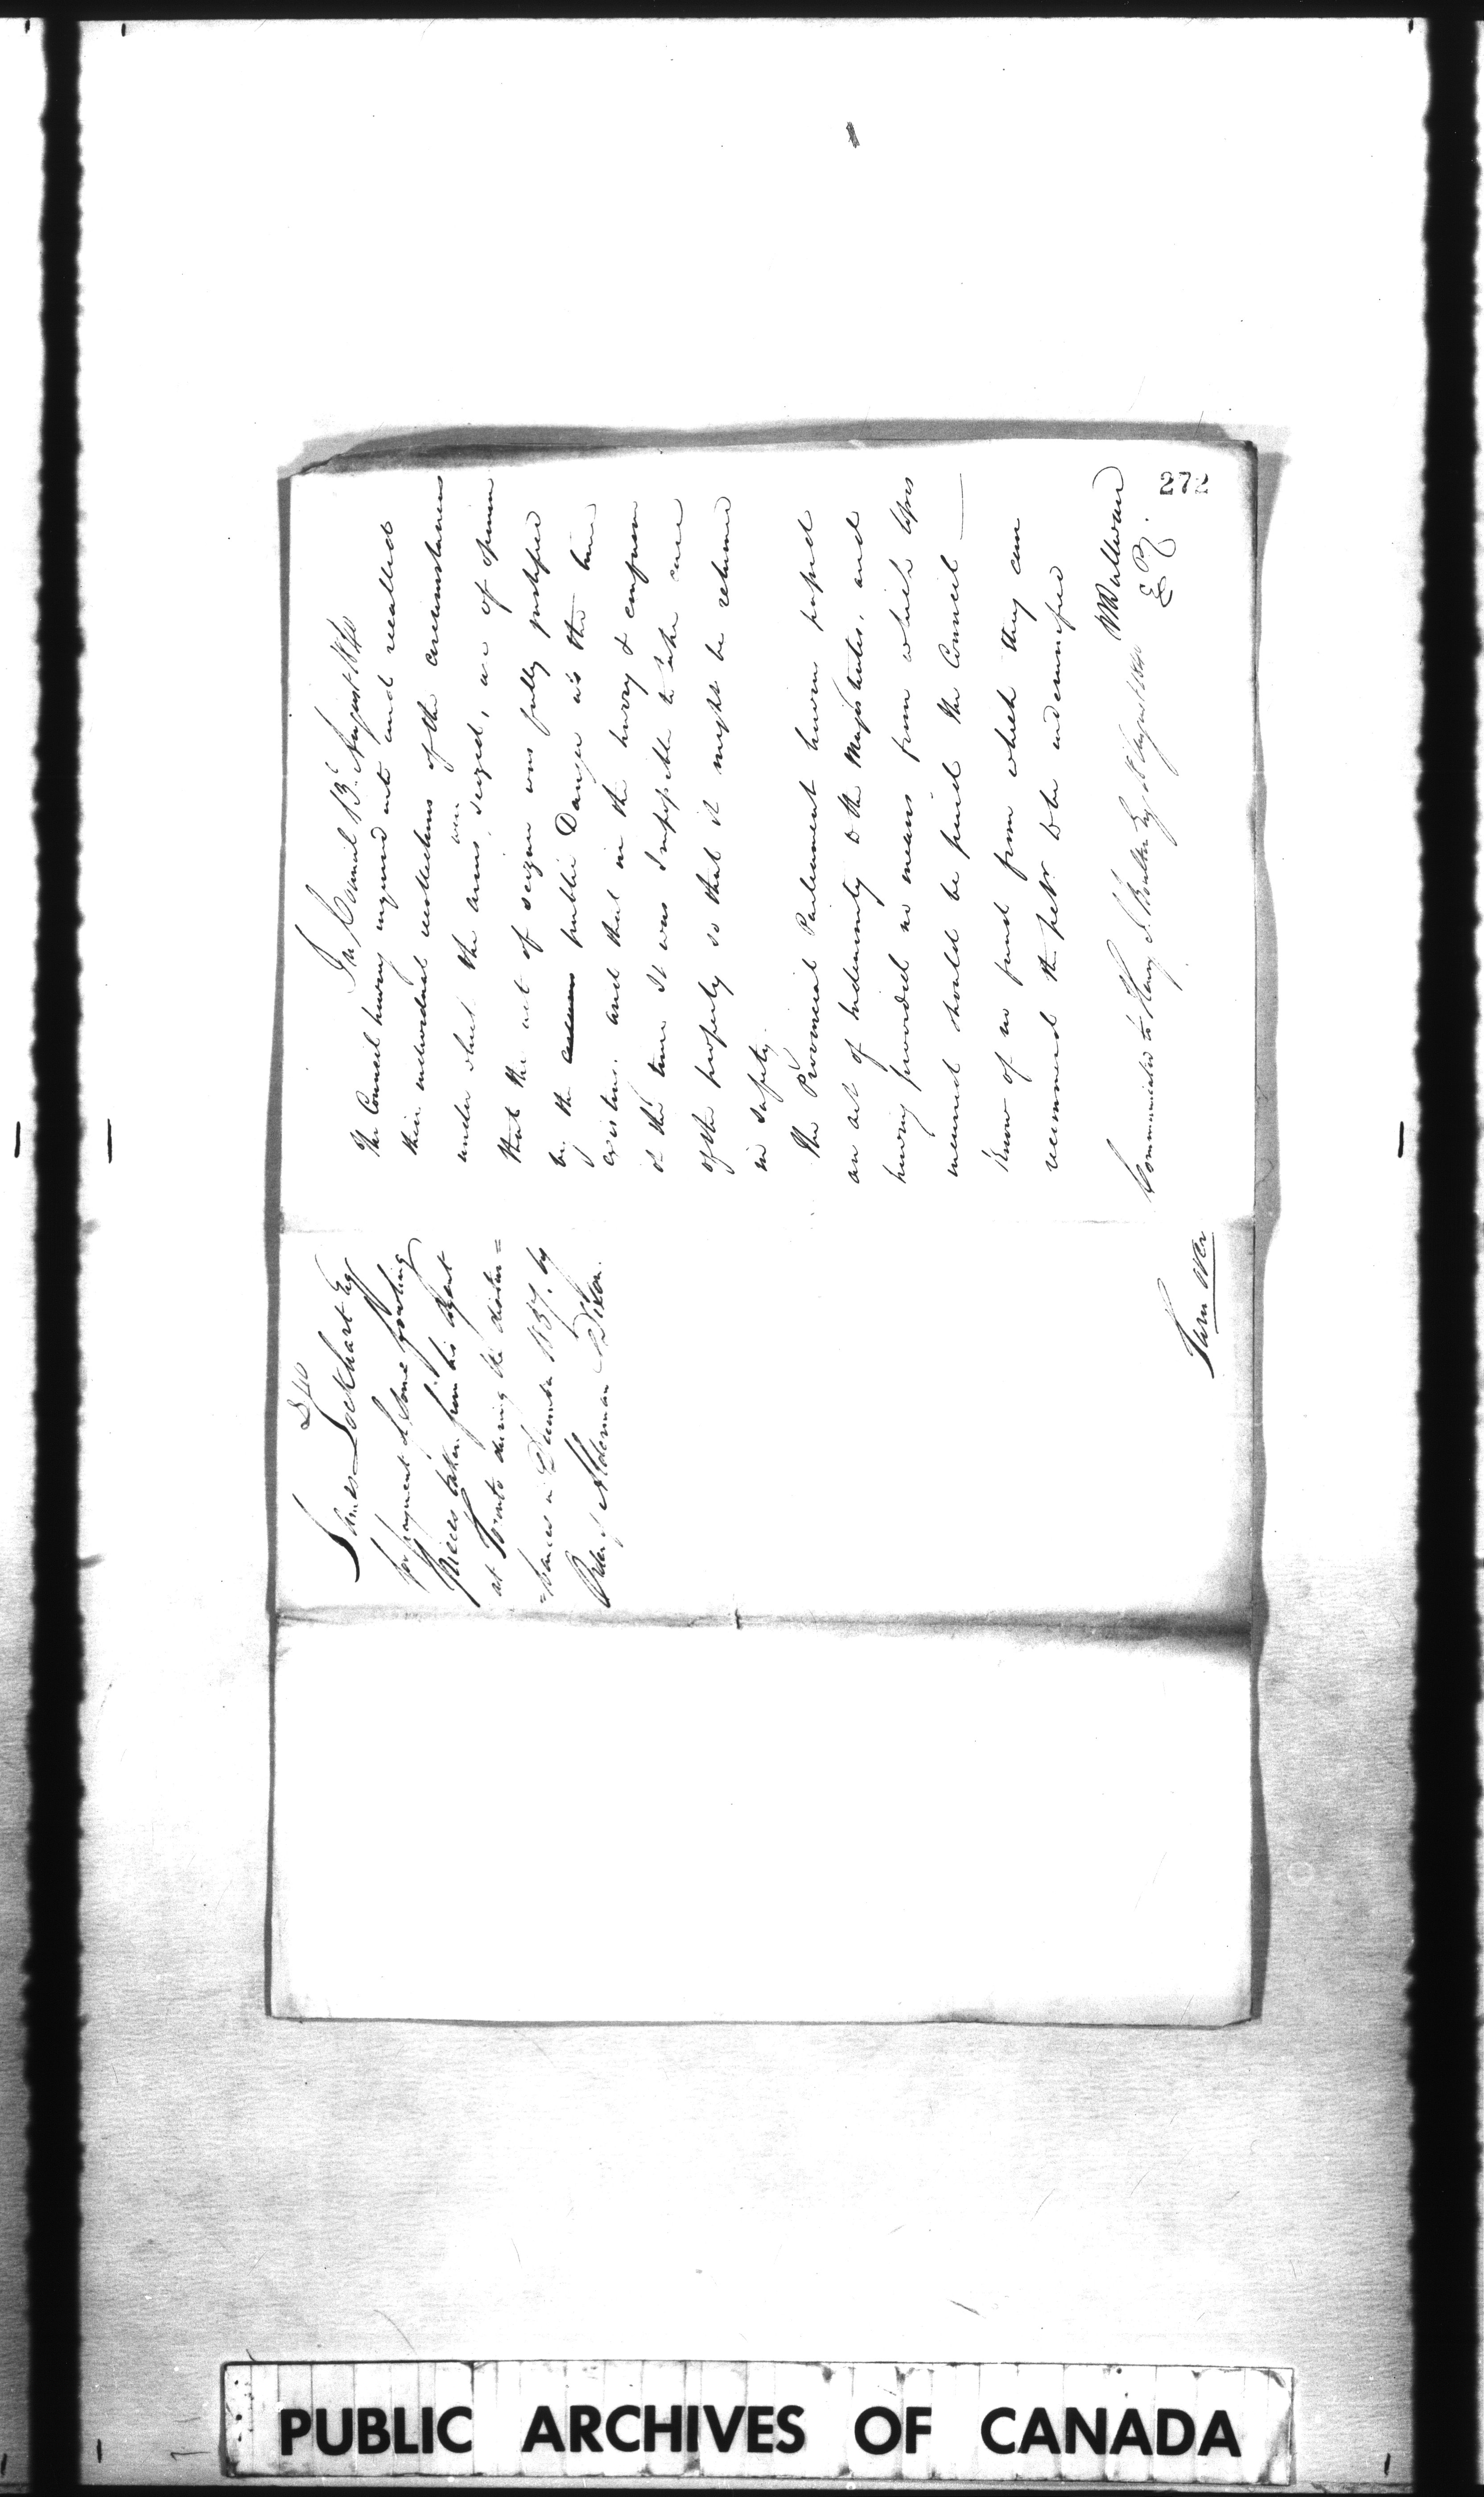 840
James Lockhart Esq
for payment of some fowling
Pieces taken from his Agent
at Toronto during the distur=
=bances in December 1837. by
Order of Alderman Dixon.
Turn over
In Council 13th August 1840
The Council having inquired into and recalled
their individual recollections of the circumstances
under which the arms were seized, are of opinion
that the act of seizure was fully justified
by the public Danger as the time
existing. and that in the hurry & confusion
of the time it was Impossible to take care
of the property so that it might be returned
in safety.
The Provincial Parliament having passed
an act of Indemnity to the Magistrates, and
having provided no means from which losses
incurred should be paid the Council
know of no fund from which they can
recommend the petr. to be indemnified
Communicated to Henry J. Boulton Esq 18 August 1840
272
PUBLIC ARCHIVES OF CANADA